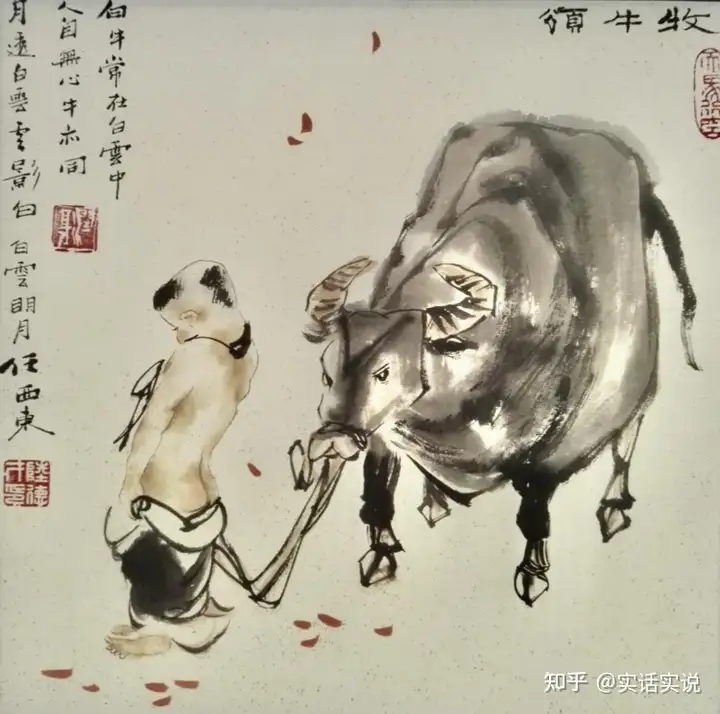 牧牛頌
白牛常在白雲中
人自無心牛亦同
月透白雲雲影白 白雲明月任西東
知乎 @实话实说